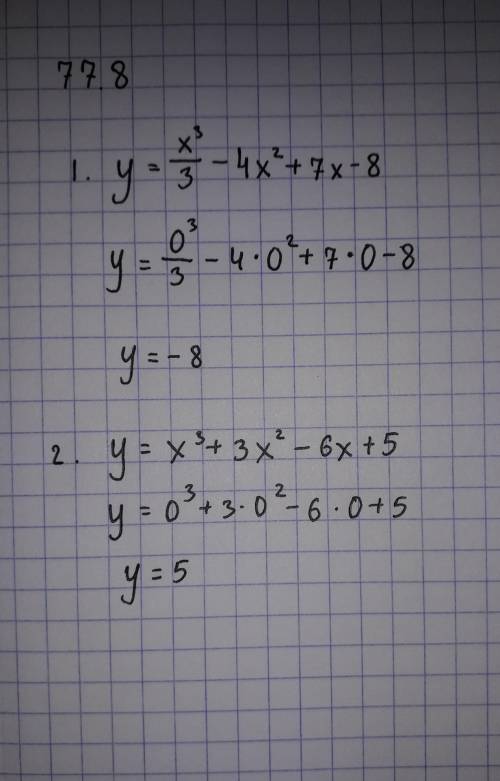 77.8
1. y = x³/3 - 4x² + 7x - 8
y = 0³/3 - 4 · 0² + 7 · 0 - 8
y = - 8
2. y = x³ + 3x² - 6x + 5
y = 0³ + 3 · 0² - 6 · 0 + 5
y = 5